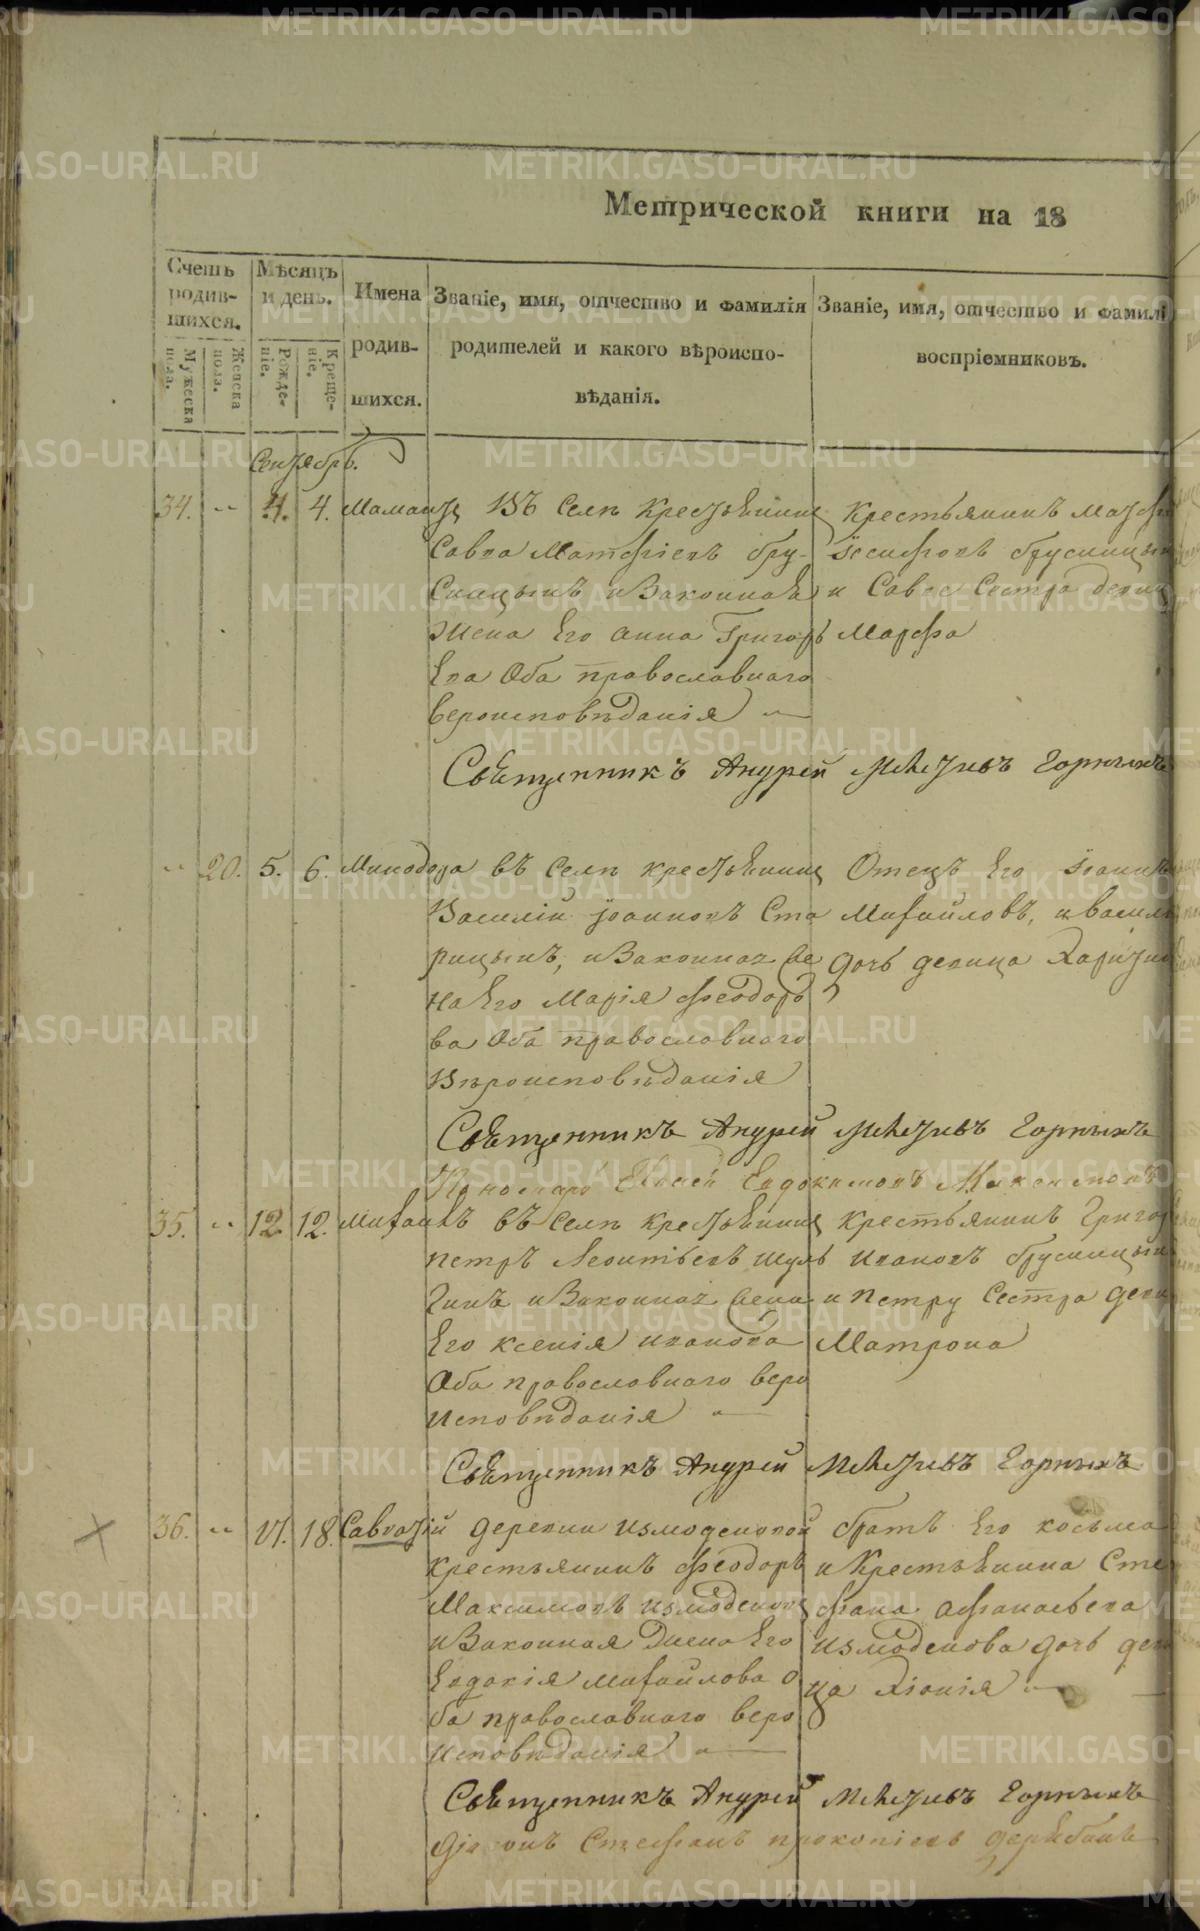 Метрической книги на 18
Счетъ родившихся.
Мужеска пола.
Женска пола.
Мѣсяцъ и день.
Рожденіе.
Крещеніе.
Имена родившихся.
Званіе, имя, отчество и фамилія родителей и какого вѣроисповѣданія.
Званіе, имя, отчество и фамилі
воспріемниковъ.
Сентябрь.
34. 4. 4. Мамантъ
Въ Селѣ Крестьянинъ
Савва Матфіевъ Бру-
сницынъ и Законная
Жена Его Анна Григорь
Ева Оба православнаго
вероисповѣданія
Крестьянинъ
Іосифовъ Брусницын
и Савве Сестра девиц
Марфа
Священникъ Андрей Горныхъ
20. 5. 6. Минодора
въ Селѣ крестьянинъ
Василій Іоанновъ Ста
рицынъ, и Законная Же
на Его Марія Феодоро
ва Оба православнаго
Вѣроисповѣданія
Отецъ Его Іоаннъ
Михайловъ, и
дочь девица
Священникъ Андрей Горныхъ
Пономарь Евдокимовъ
35. 12. 12. Михаилъ
въ Селѣ Крестьянинъ
Петръ Леонтьевъ Шуль
гинъ и Законная Жена
Его Ксенія Иванова
Оба православнаго веро
исповѣданія
Крестьянинъ Григор
Ивановъ Брусницын
и Петру Сестра деви
Матрона
Священникъ Андрей Горныхъ
36. 17. 18. Савватій
деревни Измоденовой
крестьянинъ Феодоръ
Максимовъ Измоденовъ
и Законная Жена Его
Евдокія Михайлова о
ба православнаго веро
исповѣданія
братъ Его Косьма
и Крестьянина Сте
фана Афанасьева
Измоденова дочь деви
ца Хіонія
Священникъ Андрей Горныхъ
Діаконъ Стефанъ Прокопіевъ